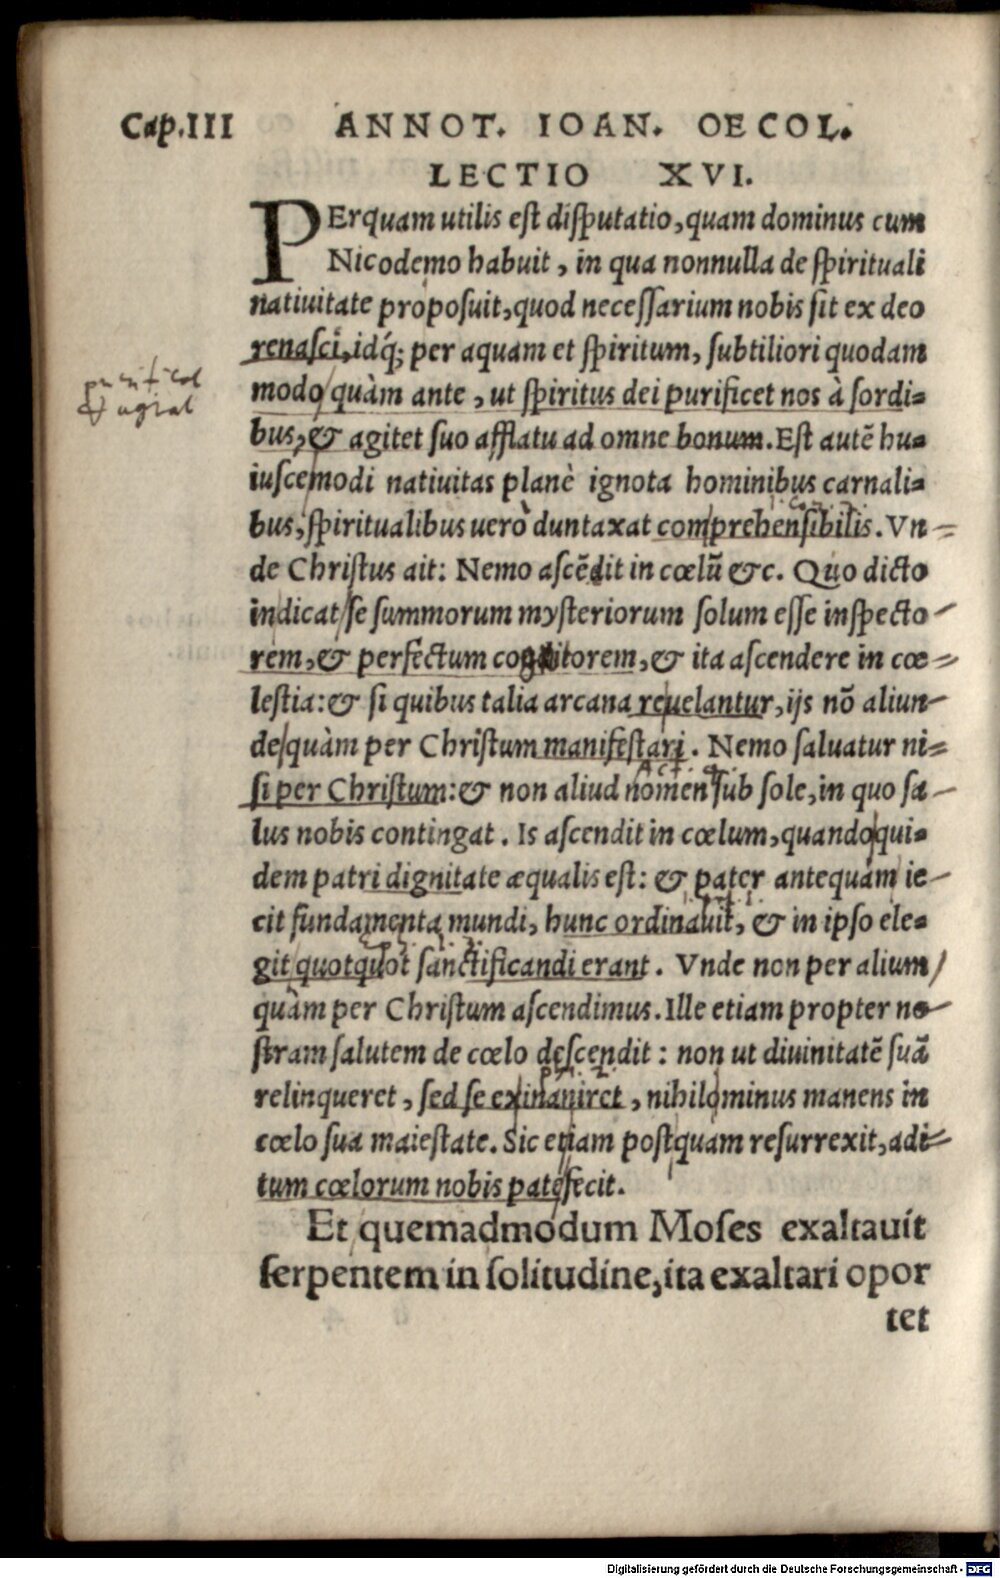 Cap.III ANNOT. IOAN. OECOL.
LECTIO XVI.
PErquam utilis eſt diſputatio, quam dominus cum
Nicodemo habuit, in qua nonnulla de ſpirituali
natiuitate propoſuit, quod neceſſarium nobis ſit ex deo
renaſci, idq́; per aquam et ſpiritum, ſubtiliori quodam
modo quàm ante, ut ſpiritus dei purificet nos à ſordi=
bus, & agitet ſuo afflatu ad omne bonum. Eſt autē hu=
iuſcemodi natiuitas planè ignota hominibus carnali=
bus, ſpiritualibus uerò duntaxat comprehenſibilis. Vn=
de Chriſtus ait: Nemo aſcēdit in cœlū &c. Quo dicto
indicat ſe ſummorum myſteriorum ſolum eſſe inſpecto
rem, & perfectum cognitorem, & ita aſcendere in cœ=
leſtia: & ſi quibus talia arcana reuelantur, ijs nō aliun
de quàm per Chriſtum manifeſtari. Nemo ſaluatur ni=
ſi per Chriſtum: & non aliud nomen ſub ſole, in quo ſa
lus nobis contingat. Is aſcendit in cœlum, quandoqui=
dem patri dignitate æqualis eſt: & pater antequàm ie
cit fundamenta mundi, hunc ordinauit, & in ipſo ele=
git quotquot ſanctificandi erant. Vnde non per alium
quàm per Chriſtum aſcendimus. Ille etiam propter no
ſtram ſalutem de cœlo deſcendit: non ut diuinitatē ſuā
relinqueret, ſed ſe exinaniret, nihilominus manens in
cœlo ſua maieſtate. Sic etiam poſtquam reſurrexit, adi=
tum cœlorum nobis patefecit.
Et quemadmodum Moſes exaltauit
ſerpentem in ſolitudine, ita exaltari opor
tet
Digitalisierung gefördert durch die Deutsche Forschungsgemeinschaft - DFG